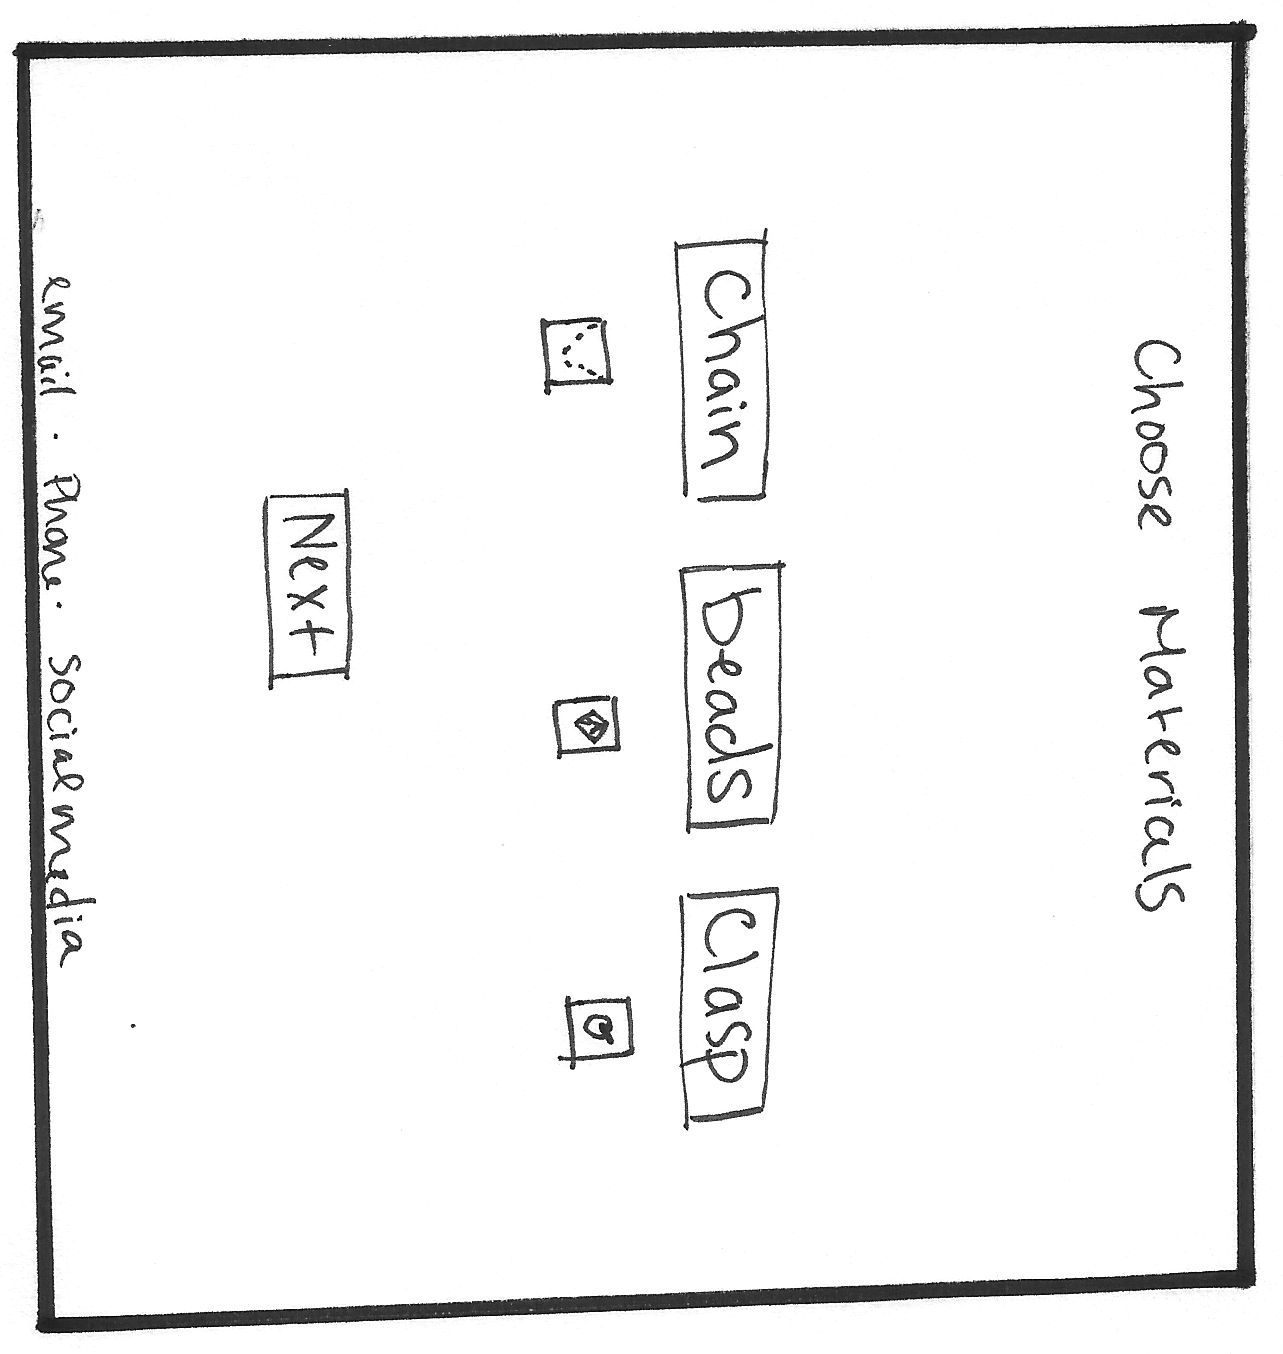 Choose Materials
Chain beads Clasp
Next
email · Phone · Socialmedia